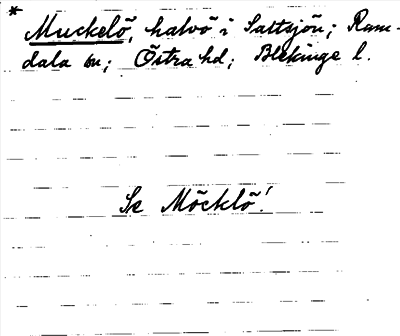 * Muckelö, halvö i Saltsjön; Ram-
dala sn; Östra hd; Blekinge l.
Se Möcklö!